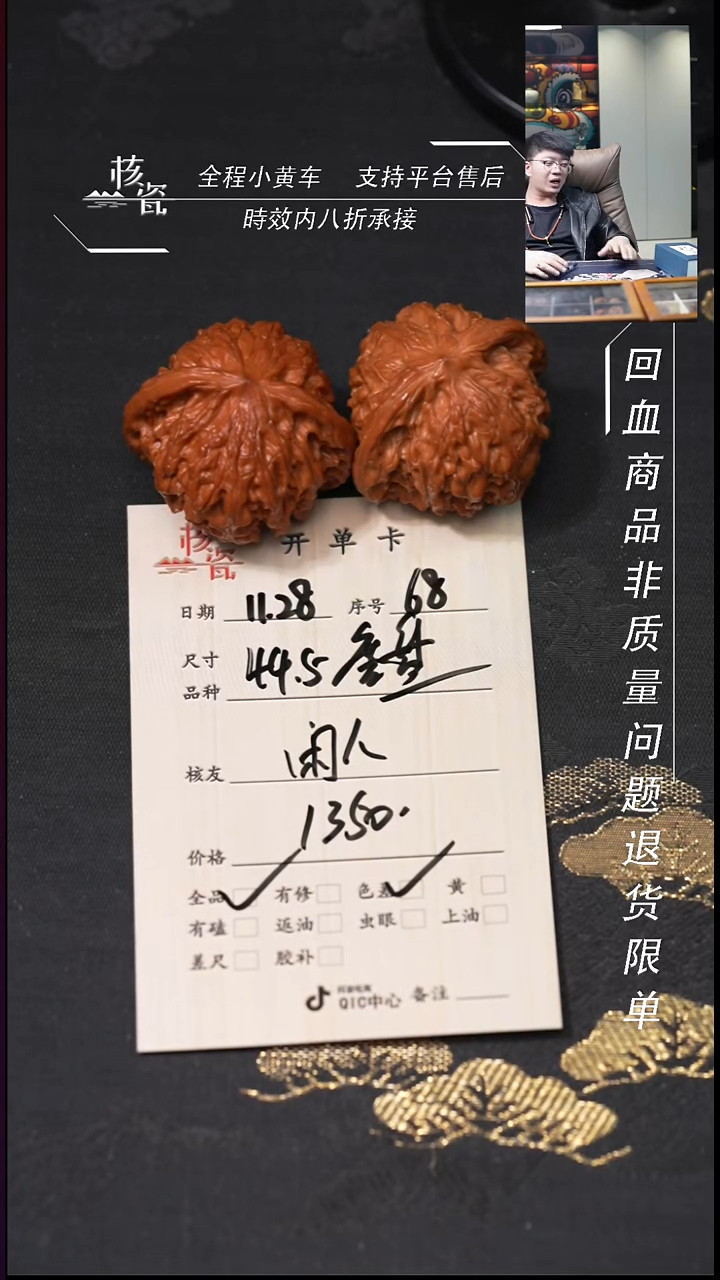 核瓷
全程小黄车 支持平台售后
時效内八折承接
回血商品非质量问题退货限单
核瓷 开单卡
日期 11.28 序号 68
尺寸 44.5
品种
核友 闲人
价格 1350.
全品 有修 色差 黄
有磕 返油 虫眼 上油
差尺 胶补
抖音电商
QIC中心 备注